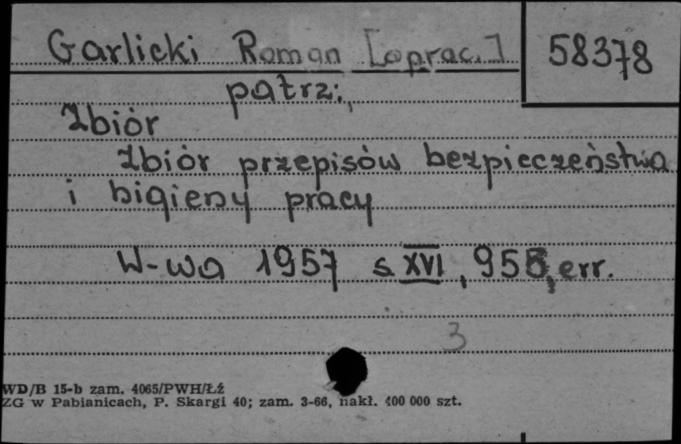 Garlicki Roman [oprac.] 58378
patrz:
Zbiór
Zbiór przepisów bezpieczeństwa
i higieny pracy
W-wa 1957 s. XVI, 955, err.
3
WD/B 15-b zam. 4065/PWH/Łź
ZG w Pabianicach, P. Skargi 40; zam. 3-66, nakł. 400 000 szt.